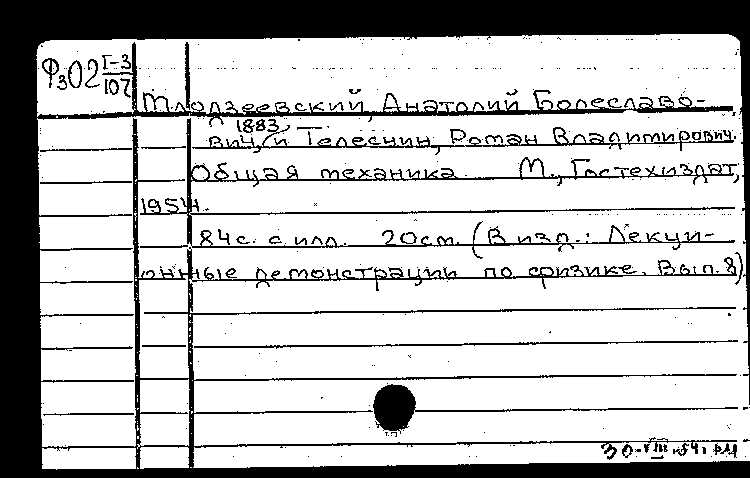 Ф₃02 I-3/107
Млодзеевский, Анатолий Болеславо-
1883
вич, и Телеснин, Роман Владимирович.
Общая механика М., Гостехиздат,
1954.
84с. с илл. 20см. (В изд.: Лекци-
онные демонстрации по физике. Вып. 8)
30-VIII-54г.